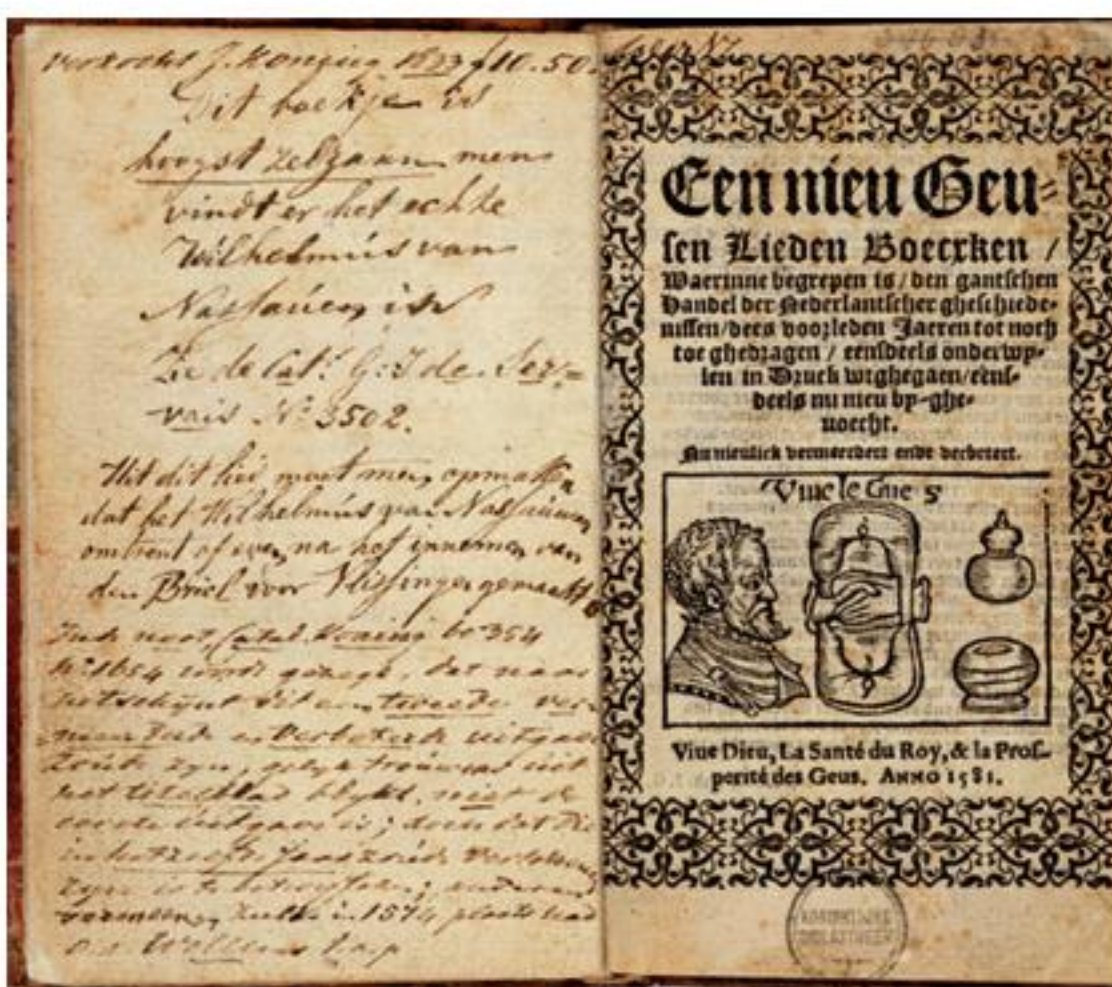 verkocht J. Koning 1833 f10.50.
Dit boekje is
hoogst zeldzaam men
vindt er het echte
Wilhelmus van
Nassauen in
Zie de Cat. G. J. de Ser-
vais No. 3502.
Uit dit lied moet men opmaken
dat het Wilhelmus van Nassauwen
omtrent of even na het innemen van
den Briel voor Vlissingen gemaakt is
Catal. Koning
No. 1654 wordt gezegd, dat naar
het schijnt dit een tweede ver-
meerderde en verbeterde uitgave
zoude zijn, gelijk trouwens uit
het titelblad blijkt, niet de
eerste uitgave is; doch dat die
in hetzelfde jaar zoude verschenen
zijn is te betwijfelen; anderen
vermeenen zulks in 1574 plaats had
Willems
Een nieu Geu-
sen Lieden Boecxken /
Waerinne begrepen is / den gantschen
Handel der Nederlantscher gheschiede-
nissen / dees voorleden Jaeren tot noch
toe ghedragen / eensdeels onderwy-
len in Druck wtghegaen / eens-
deels nu nieu by-ghe-
uoecht.
Nu nieulick vermeerdert ende verbetert.
Viue le Gue s
Viue Dieu, La Santé du Roy, & la Pros-
perité des Geus. ANNO 1581.
KONINKLIJKE
BIBLIOTHEEK